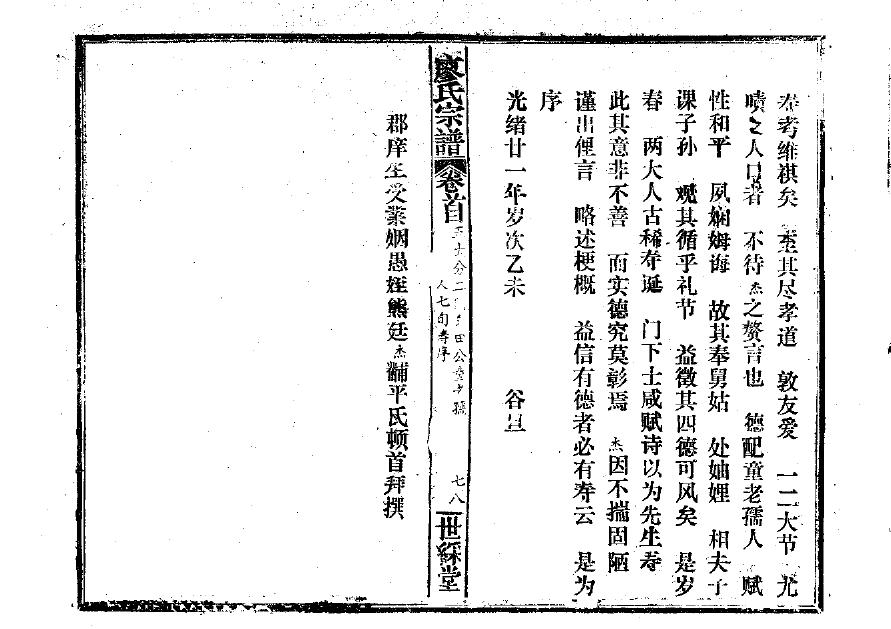 寿考维祺矣 至其尽孝道 敦友爱 一二大节 尤
啧之人口者 不待杰之赘言也 德配童老孺人 赋
性和平 夙娴姆诲 故其奉舅姑 处妯娌 相夫子
课子孙 观其循乎礼节 益徵其四德可风矣 是岁
春 两大人古稀寿诞 门下士咸赋诗以为先生寿
此其意非不善 而实德究莫彰焉 杰因不揣固陋
谨出俚言 略述梗概 益信有德者必有寿云 是为
序
光绪廿一年岁次乙未 谷旦
廖氏宗谱 卷首
公童老孺
人七旬寿序
七八
世綵堂
郡庠生受业姻愚侄熊廷杰黼平氏顿首拜撰